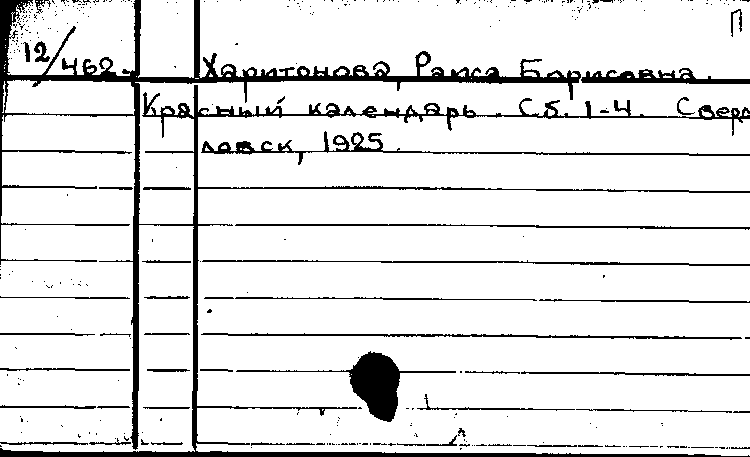 П
12/462. Харитонова, Раиса Борисовна.
Красный календарь. Сб. 1-4. Сверд
ловск, 1925.